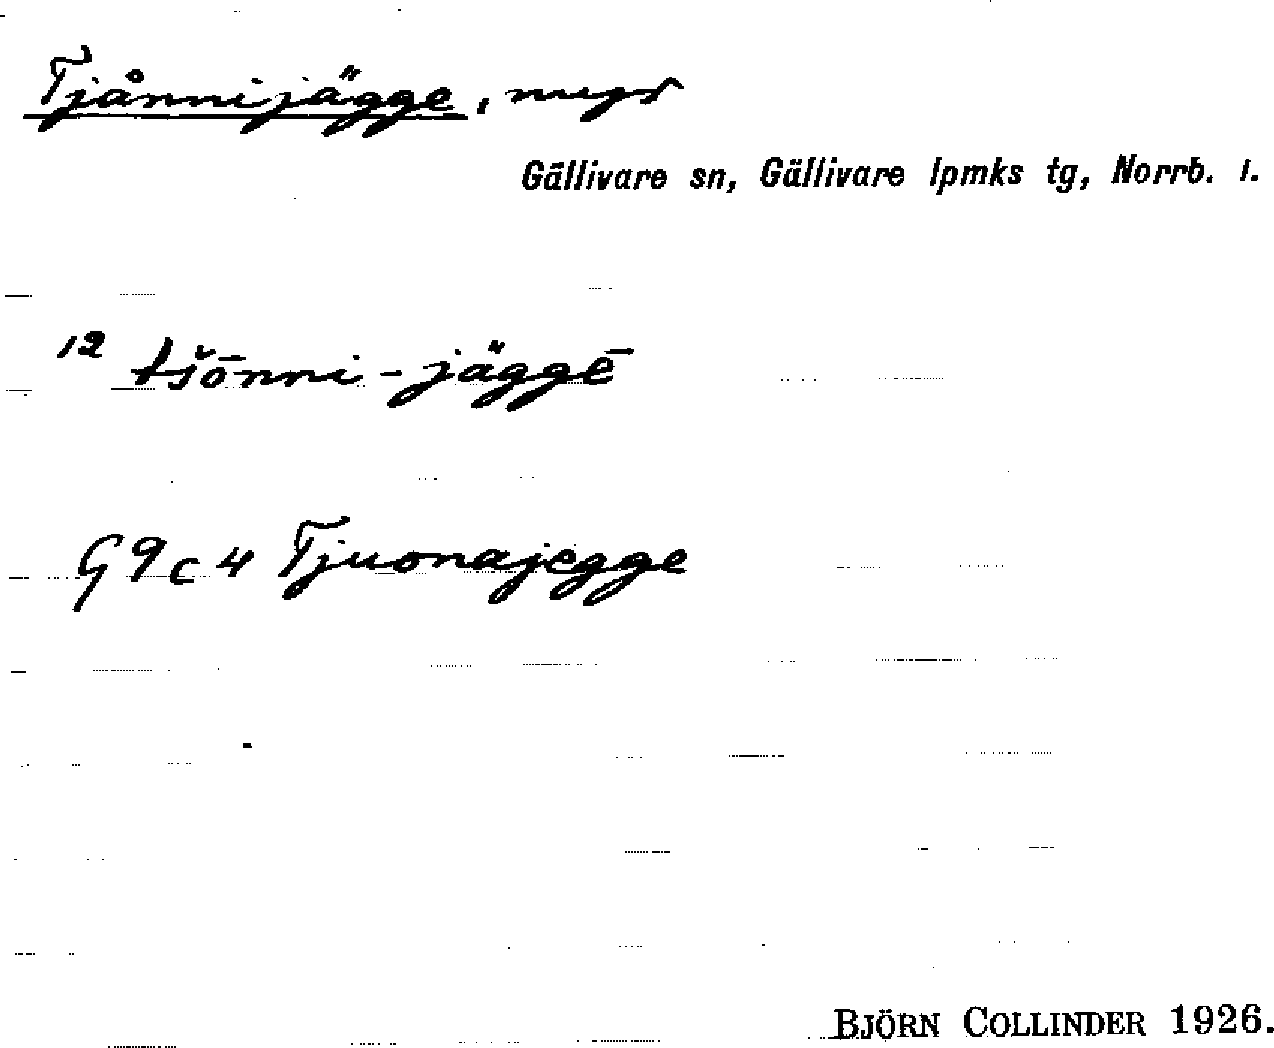 Tjånnijägge, myr
Gällivare sn, Gällivare lpmks tg, Norrb. l.
12 tšōnni-jäggē
G 9 c 4 Tjuonajegge
BJÖRN COLLINDER 1926.